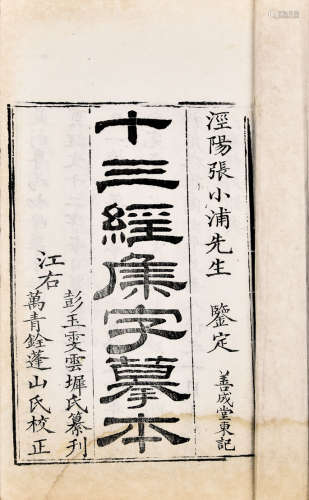 涇陽張小浦先生 鑒定
善成堂東記
十三經集字摹本
彭玉雯雲墀氏纂刊
江右
萬青銓蓬山氏校正